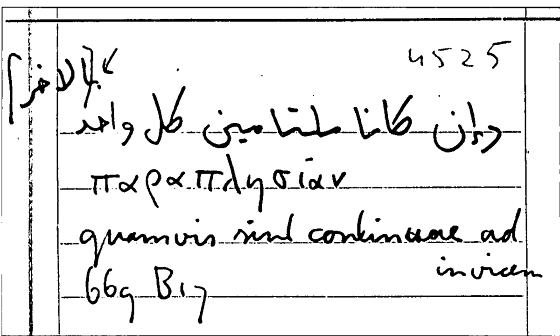 4525
وان كانا ملتامين كل واحد
بالاخر
παραπλησίαν
quamvis sint continuae ad
invicem
669 B17